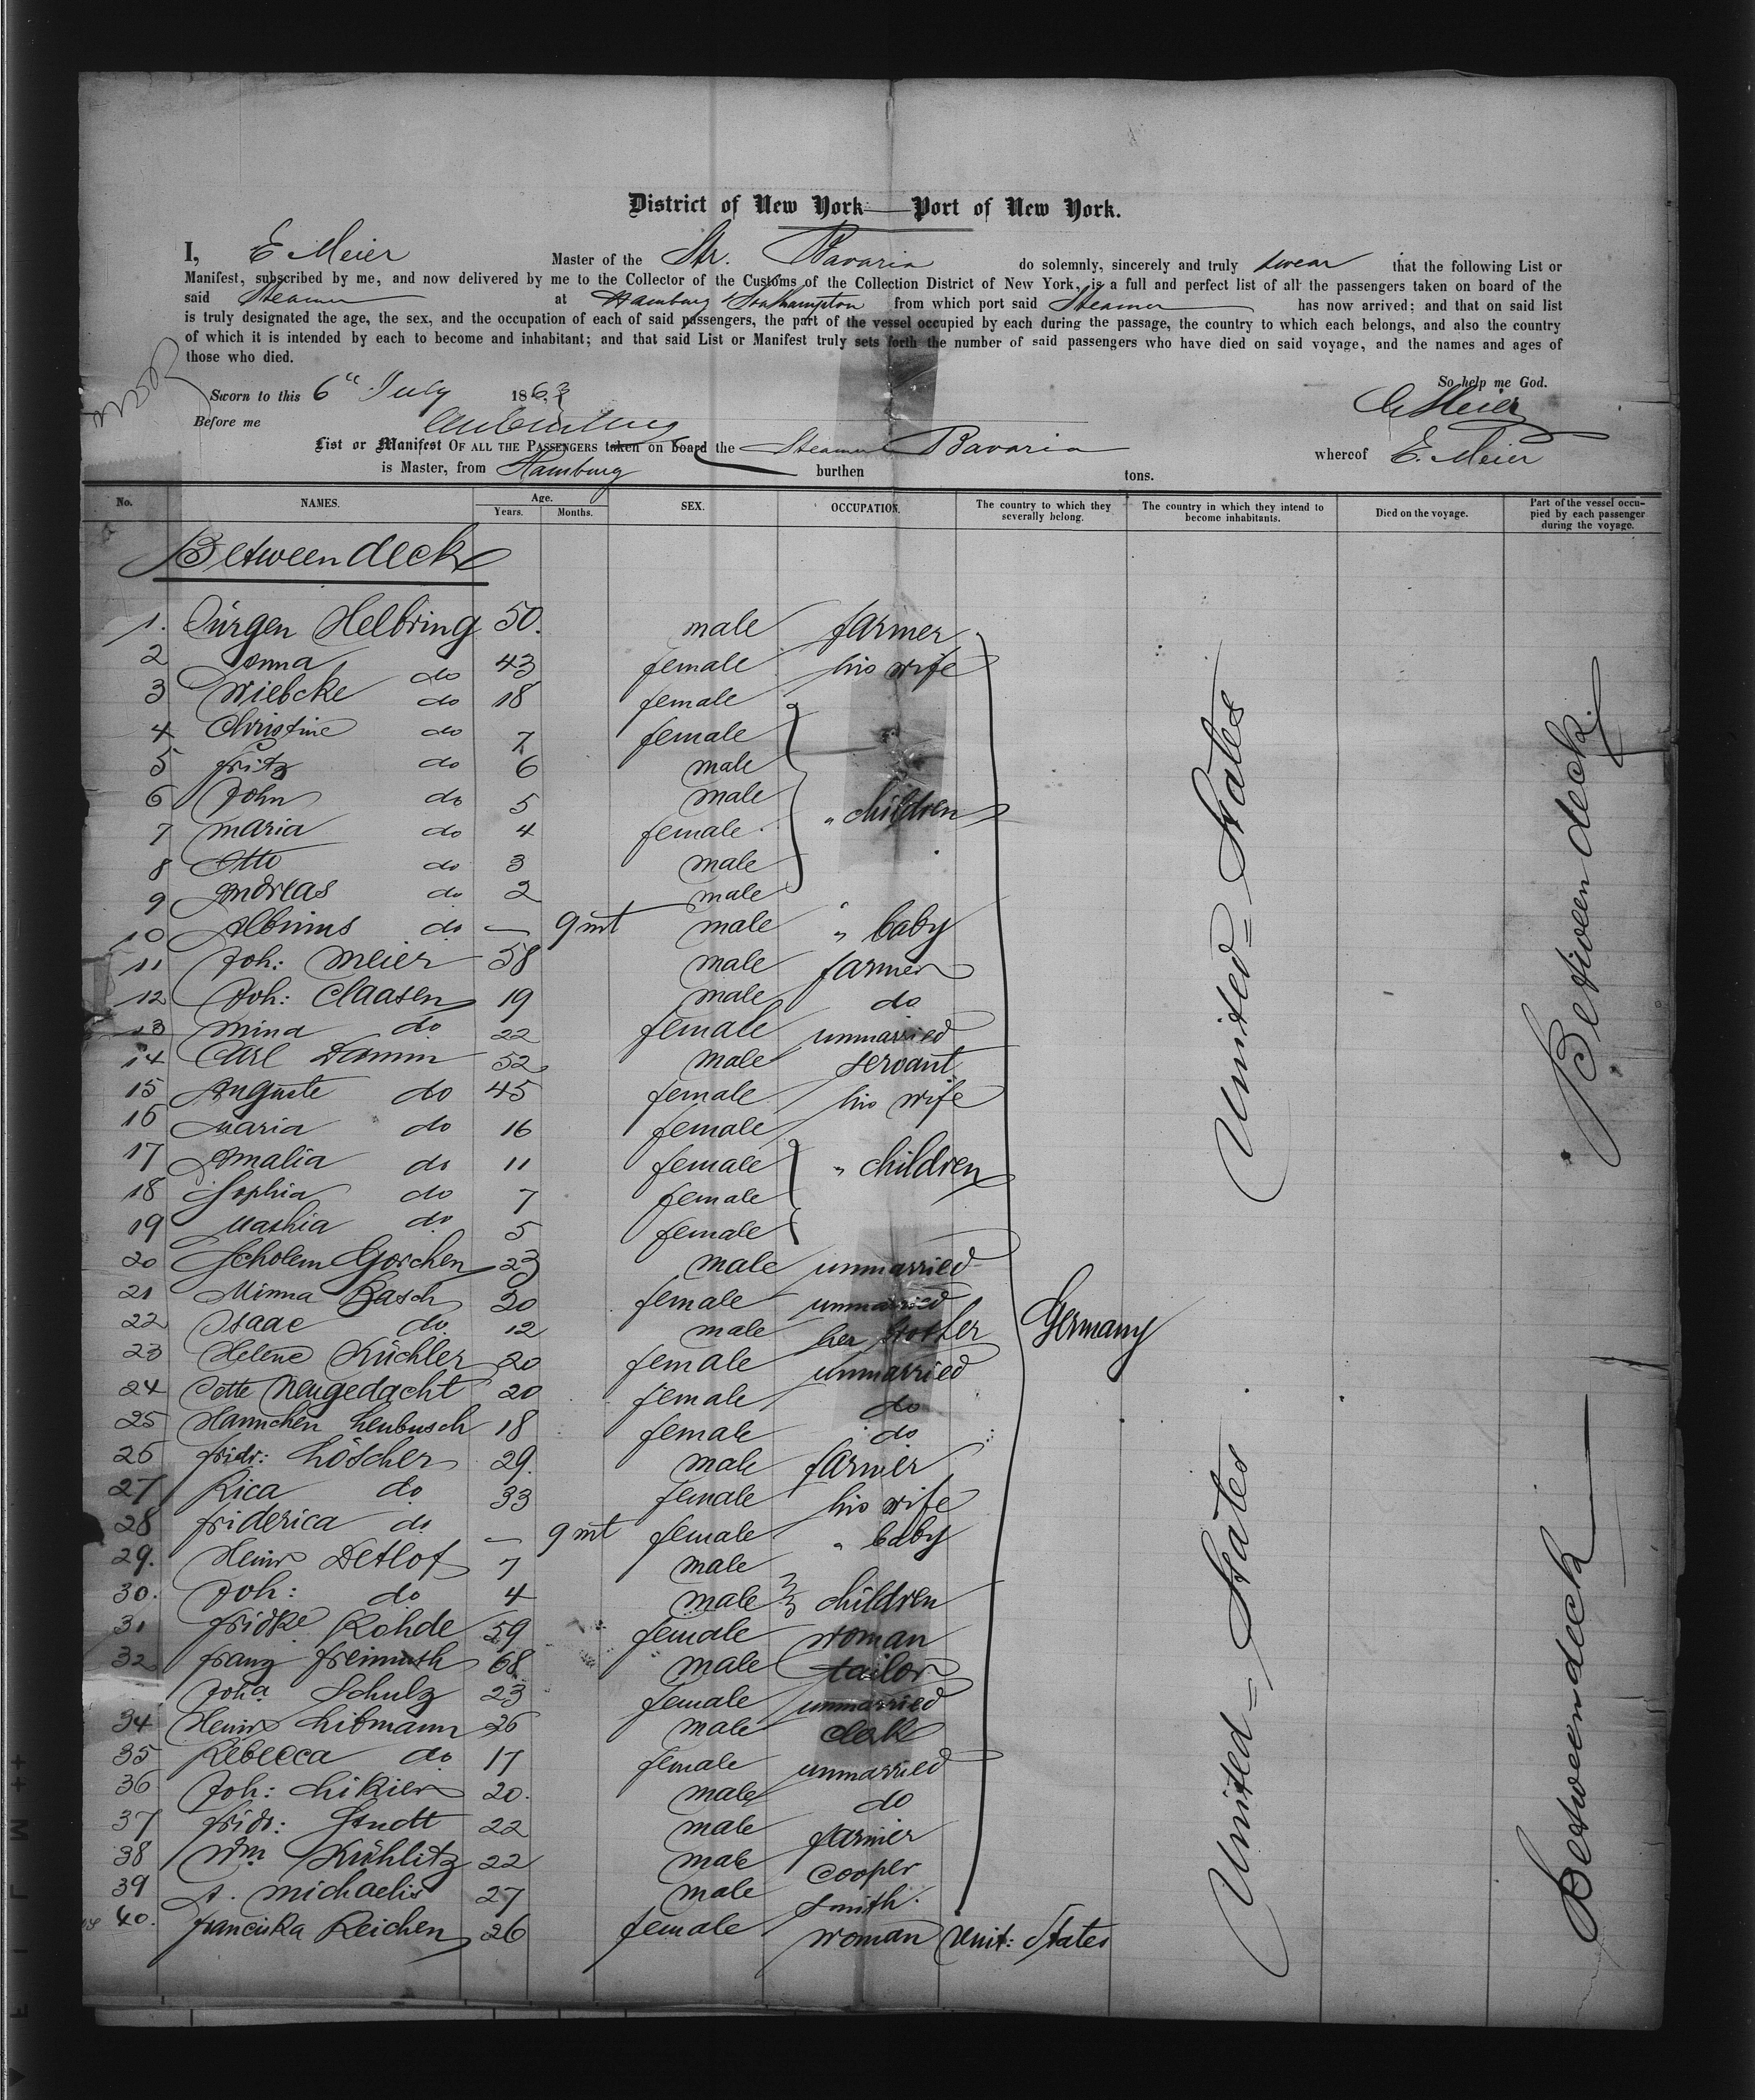 District of New York — Port of New York.
I, E Meier Master of the Str. Bavaria do solemnly, sincerely and truly swear that the following List or
Manifest, subscribed by me, and now delivered by me to the Collector of the Customs of the Collection District of New York, is a full and perfect list of all the passengers taken on board of the
said Steamer at Hamburg & Southampton from which port said Steamer has now arrived; and that on said list
is truly designated the age, the sex, and the occupation of each of said passengers, the part of the vessel occupied by each during the passage, the country to which each belongs, and also the country
of which it is intended by each to become and inhabitant; and that said List or Manifest truly sets forth the number of said passengers who have died on said voyage, and the names and ages of
those who died.
So help me God.
Sworn to this 6" July 1863
E Meier
Before me
List or Manifest OF ALL THE PASSENGERS taken on board the Steamer Bavaria whereof E. Meier
is Master, from Hamburg burthen tons.
No. NAMES. Age. Years. Months. SEX. OCCUPATION. The country to which they severally belong. The country in which they intend to become inhabitants. Died on the voyage. Part of the vessel occupied by each passenger during the voyage.
Between deck
1. Jürgen Helbring 50. male farmer
2 Anna do 43 female his wife
3 Wiebcke do 18 female
4 Christine do 7 female
5 Fritz do 6 male
6 John do 5 male
7 Maria do 4 female " children
8 Otto do 3 male
9 Andreas do 2 male
10 Albinus do — 9 mt male " baby
11 Joh: Meier 58 male farmer
12 Joh: Claasen 19 male do
13 Mina do 22 female unmarried
14 Carl Damm 52 male servant
15 Auguste do 45 female his wife
16 Maria do 16 female
17 Amalia do 11 female " children
18 Sophia do 7 female
19 do 5 female
20 Scholem Gorchen 23 male unmarried
21 Minna Basch 20 female unmarried
22 Isaac do 12 male her brother
23 Helene Küchler 20 female unmarried
24 Jette Neugedacht 20 female do
25 Hannchen Leubusch 18 female do
26 Fridr: Löscher 29. male farmer
27 Rica do 33 female his wife
28 Friderica do — 9 mt female " baby
29. Heinr Detlof 7 male
30. Joh: do 4 male children
31 Fridke Rohde 59 female woman
32 Franz Freimuth 68 male tailor
Joha Schulz 23 female unmarried
34 Heinr Libmann 26 male clerk
35 Rebecca do 17 female unmarried
36 Joh: Likier 20. male do
37 Fridr: Studt 22 male farmer
38 Wm Kühlitz 22 male cooper
39 A. Michaelis 27 male smith.
40. Franciska Reichen 26 female woman Unit: States
Germany
United States
United States
Between deck.
Between deck